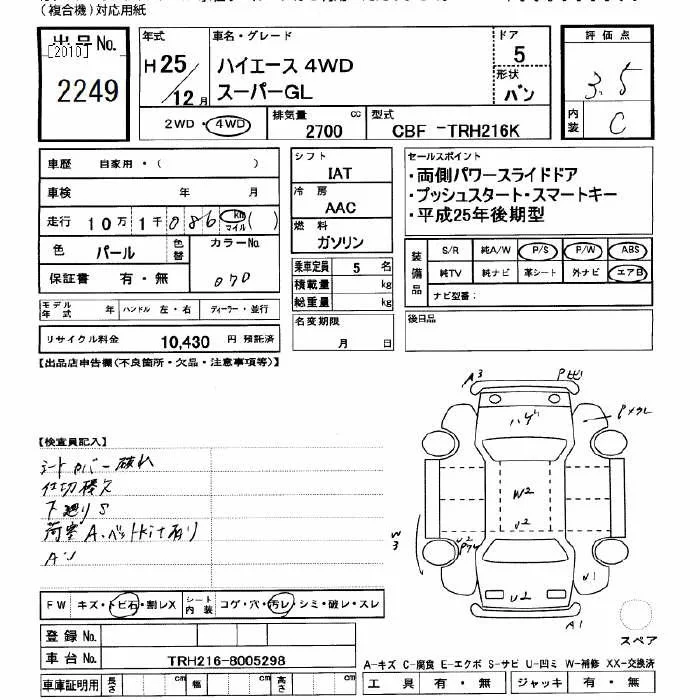 (複合機)対応用紙
出品No.
[2010]
2249
年式
H25/12月
車名・グレード
ハイエース 4WD
スーパーGL
ドア
5
形状
バン
評価点
3.5
内装
C
2WD・4WD
排気量
2700
cc
型式
CBF -TRH216K
車歴 自家用・( )
車検 年 月
走行 10万1千086 km マイル ( )
色 パール
色替
カラーNo.
070
保証書 有・無
モデル年式 年 ハンドル 左・右 ディーラー・並行
リサイクル料金 10,430 円 預託済
シフト
IAT
冷房
AAC
燃料
ガソリン
乗車定員 5 名
積載量 kg
総重量 kg
名変期限
月 日
セールスポイント
・両側パワースライドドア
・プッシュスタート・スマートキー
・平成25年後期型
装備品
S/R 純A/W P/S P/W ABS
純TV 純ナビ 革シート 外ナビ エアB
ナビ型番:
後日品
【出品店申告欄(不良箇所・欠品・注意事項等)】
【検査員記入】
シートカバー破れ
仕切棒欠
下廻りS
荷室A、ベットkit有り
AU
FW キズ・トビ石・割レX
シート内装 コゲ・穴・汚レ・シミ・破レ・スレ
登録No.
車台No. TRH216-8005298
車庫証明用 長さ cm 幅 cm 高さ cm
A3
ハゲ
W2
U2
W3
U2
U2
U1
A1
スペア
A-キズ C-腐食 E-エクボ S-サビ U-凹ミ W-補修 XX-交換済
工具 有・無 ジャッキ 有・無